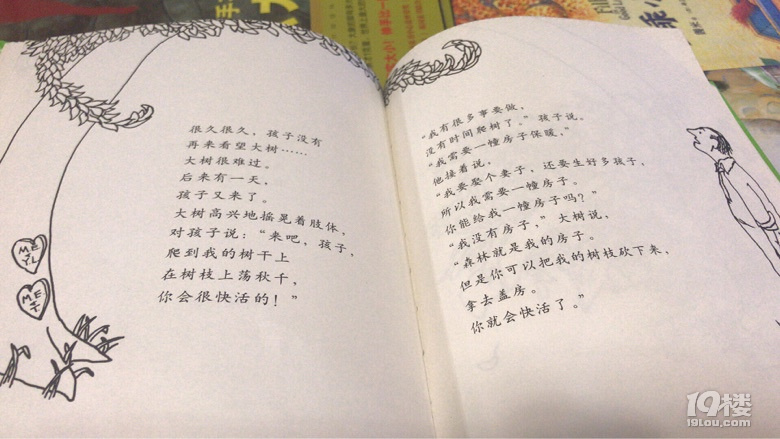 很久很久，孩子没有
再来看望大树……
大树很难过。
后来有一天，
孩子又来了。
大树高兴地摇晃着肢体，
对孩子说：“来吧，孩子，
爬到我的树干上
在树枝上荡秋千，
你会很快活的！”
ME
Y.L.
ME
T.
“我有很多事要做，
没有时间爬树了。”孩子说。
“我需要一幢房子保暖，”
他接着说，
“我要娶个妻子，还要生好多孩子，
所以我需要一幢房子。
你能给我一幢房子吗？”
“我没有房子，”大树说，
“森林就是我的房子。
但是你可以把我的树枝砍下来，
拿去盖房。
你就会快活了。”
19楼
19lou.com